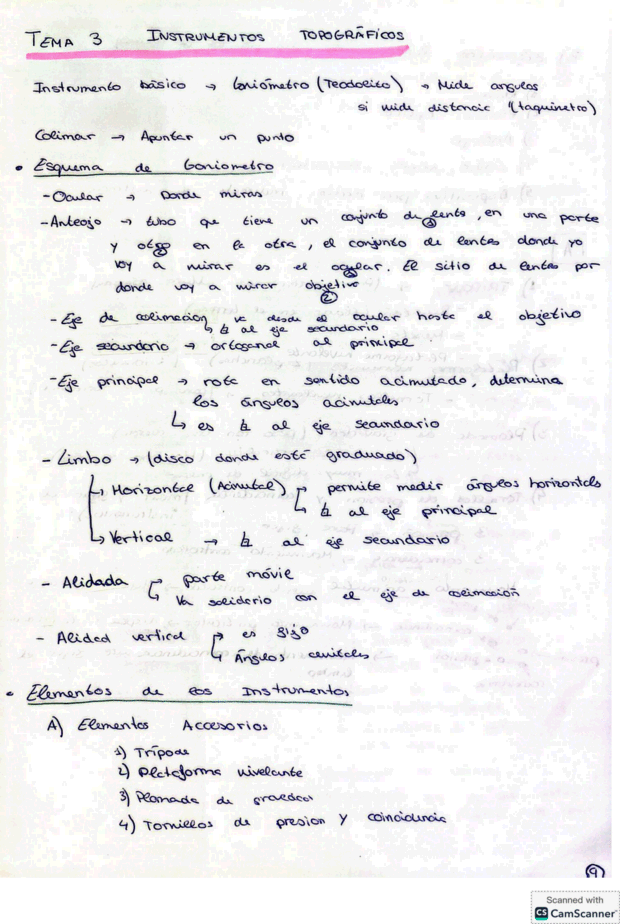 TEMA 3 INSTRUMENTOS TOPOGRÁFICOS
Instrumento básico → Goniómetro (Teodolito) → Mide angulos
si mide distancia "(taquimetro)
Colimar → Apuntar un punto
• Esquema de Goniometro
- Ocular → Donde miras
- Anteojo → tubo que tiene un conjunto de lente, en una parte
y otro en la otra, el conjunto de lentes donde yo
voy a mirar es el ocular. El sitio de lentes por
donde voy a mirar objetivo
②
- Eje de colimación va desde el ocular hasta el objetivo
↳ ⊥ al eje secundario
- Eje secundario → ortogonal al principal
- Eje principal → rota en sentido acimutado, determina
los ángulos acimutales
↳ es ⊥ al eje secundario
- Limbo → (disco donde está graduado)
↳ Horizontal (Acimutal) permite medir ángulos horizontals
↳ ⊥ al eje principal
↳ Vertical → ⊥ al eje secundario
- Alidada parte móvil
↳ Va solidario con el eje de colimación
- Alidad vertical es fijo
↳ Ángulos cenitales
• Elementos de los Instrumentos
A) Elementos Accesorios
1) Trípode
2) Plataforma nivelante
3) Plomada de gravedad
4) Tornillos de presion y coincidencia
9
Scanned with
CS CamScanner